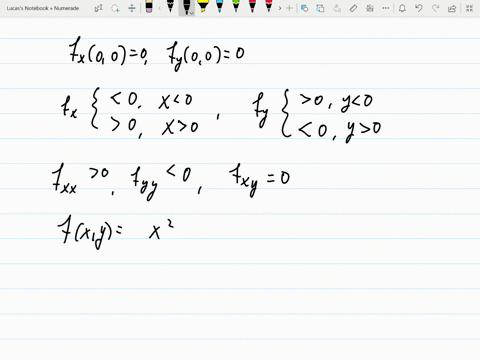 Lucas's Notebook • Numerade
fx(0,0)=0, fy(0,0)=0
fx { <0, x<0 , fy { >0, y<0
>0, x>0 <0, y>0
fxx >0, fyy <0, fxy =0
f(x,y)= x²